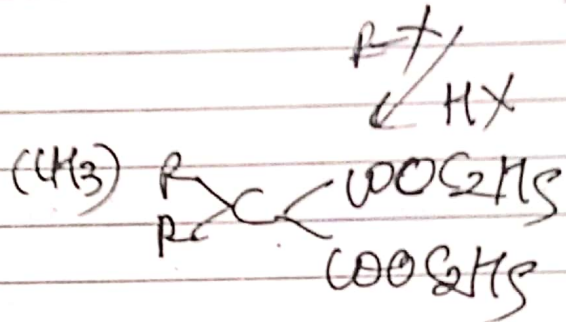 R-X
HX
(CH3) R C COOC2H5
R COOC2H5